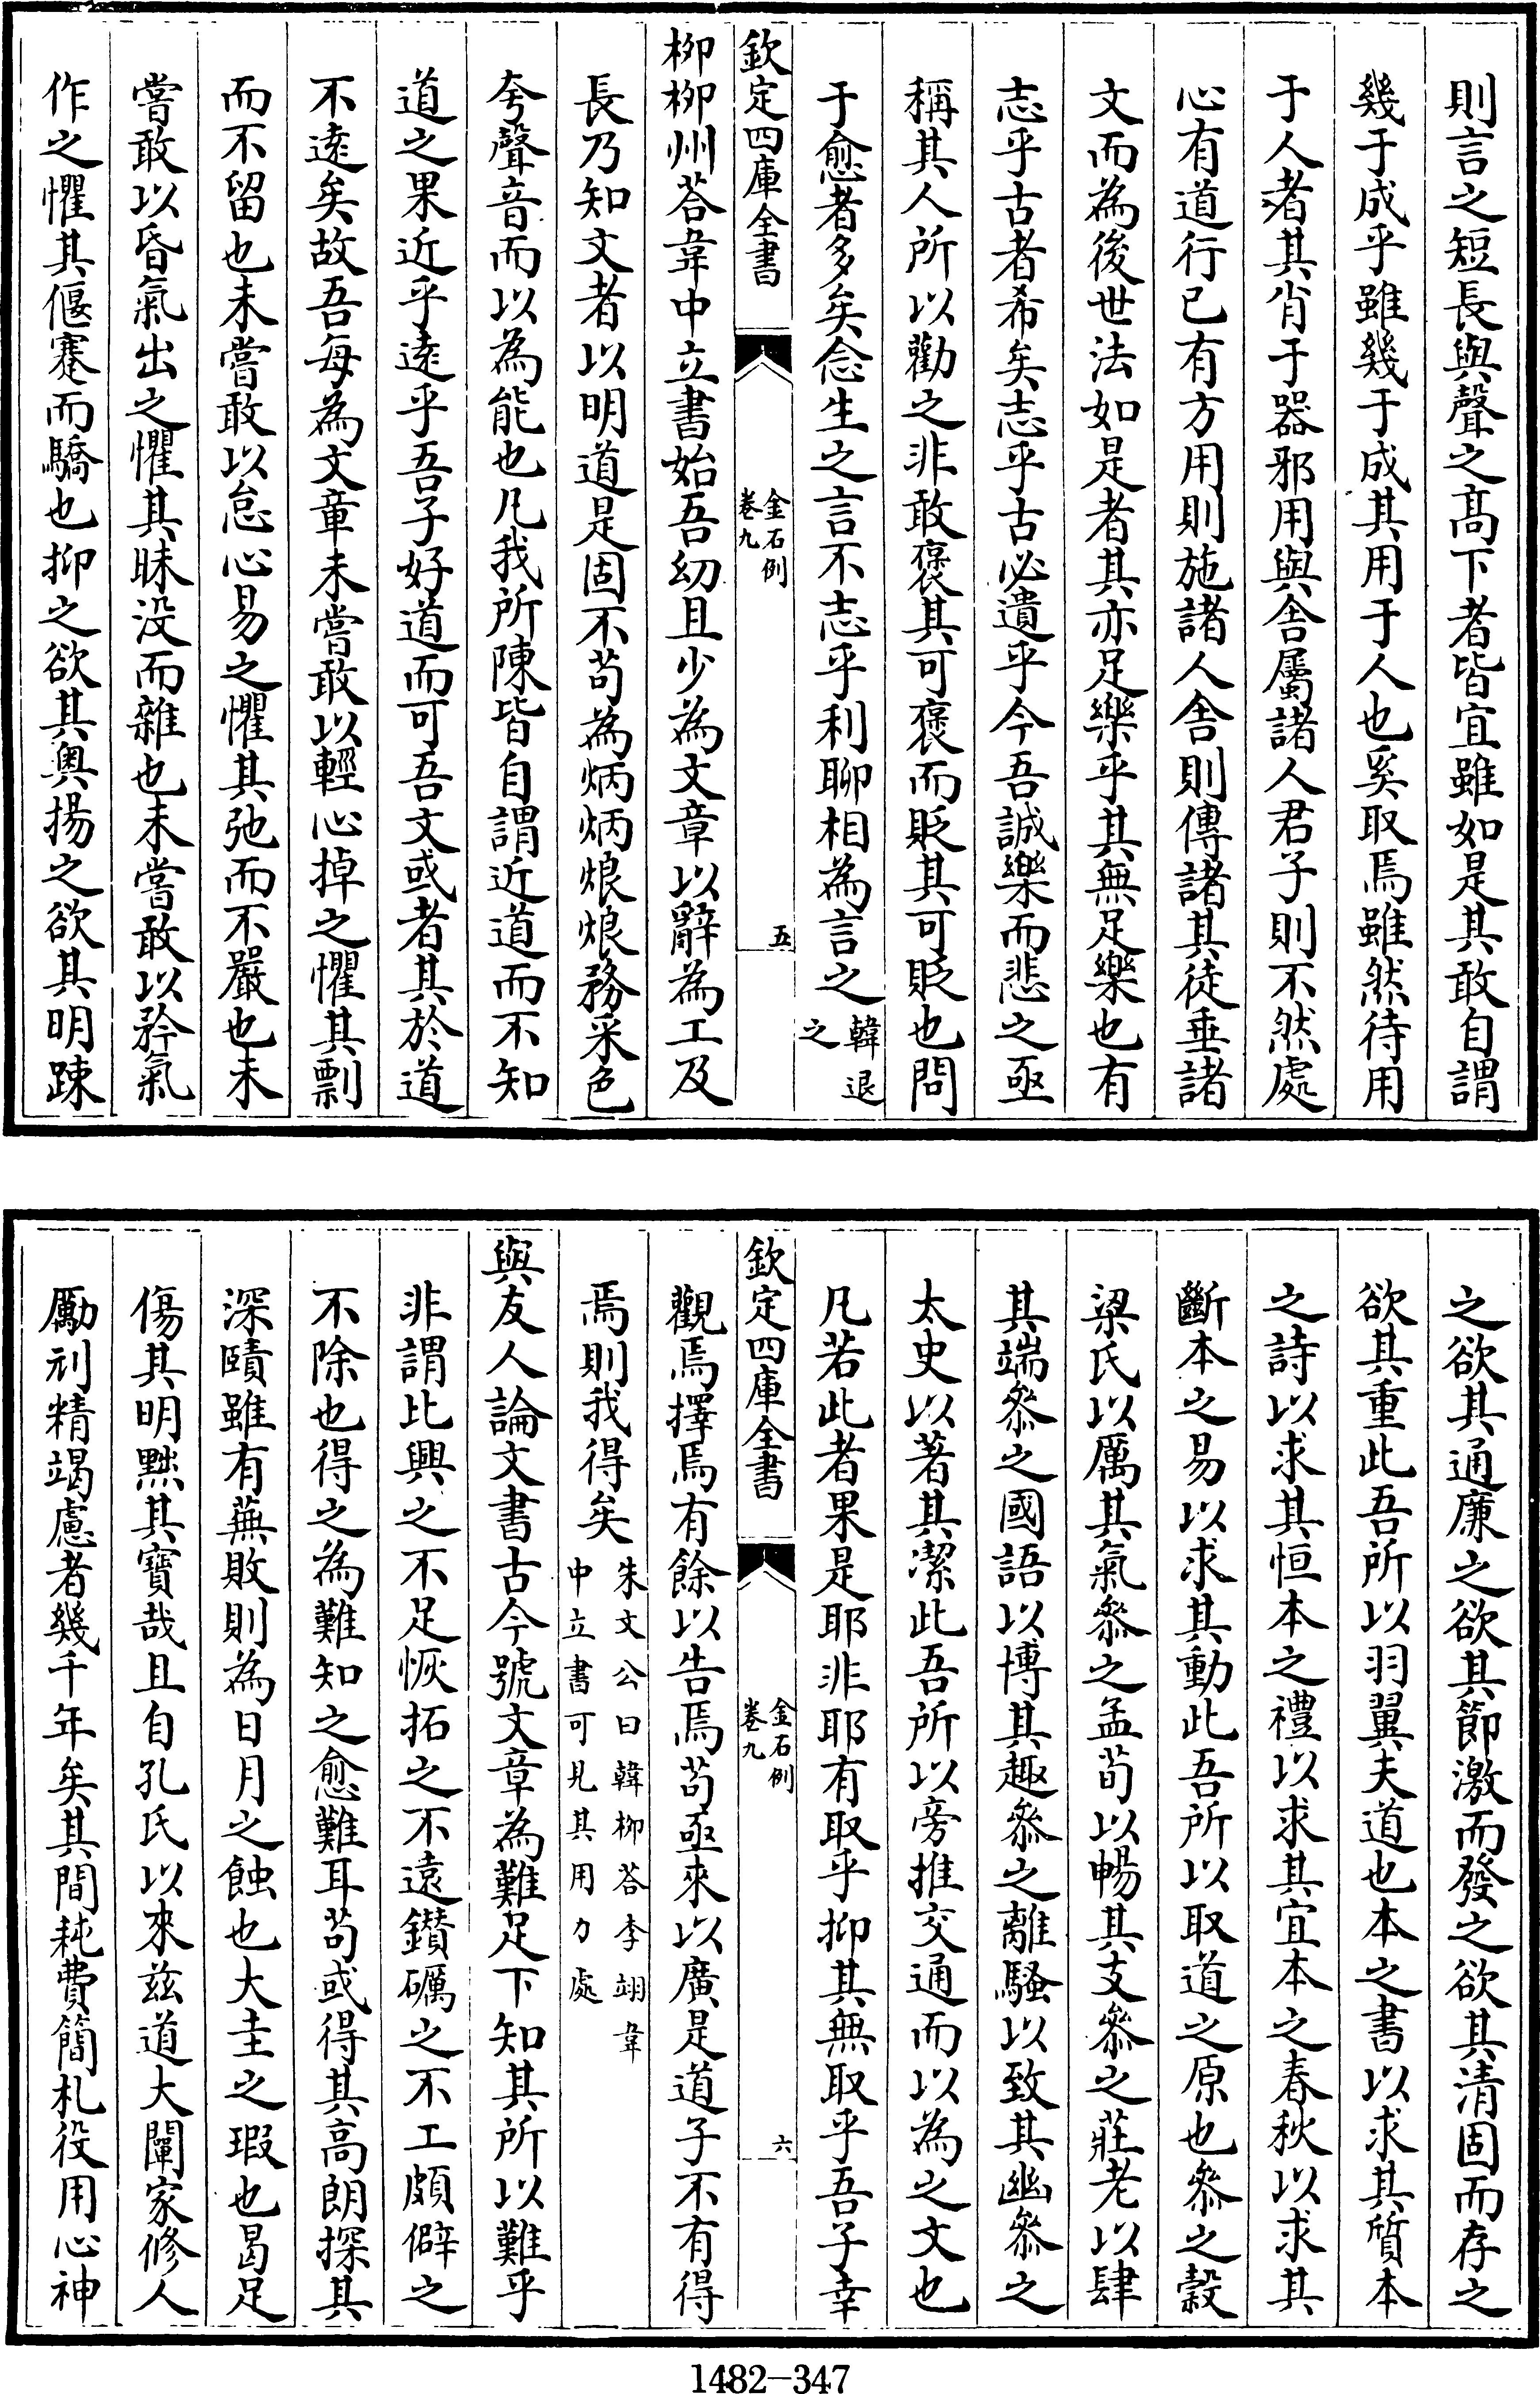 則言之短長與聲之髙下者皆宜雖如是其敢自謂
幾于成乎雖幾于成其用于人也奚取焉雖然待用
于人者其肖于器邪用與舍屬諸人君子則不然處
心有道行已有方用則施諸人舍則傳諸其徒垂諸
文而為後世法如是者其亦足樂乎其無足樂也有
志乎古者希矣志乎古必遺乎今吾誠樂而悲之亟
稱其人所以勸之非敢襃其可襃而貶其可貶也問
于愈者多矣念生之言不志乎利聊相為言之韓退之
欽定四庫全書
金石例
卷九
五
柳柳州荅韋中立書始吾幼且少為文章以辭為工及
長乃知文者以明道是固不苟為炳炳烺烺務采色
夸聲音而以為能也凡我所陳皆自謂近道而不知
道之果近乎遠乎吾子好道而可吾文或者其於道
不遠矣故吾每為文章未嘗敢以輕心掉之懼其剽
而不留也未嘗敢以怠心易之懼其弛而不嚴也未
嘗敢以昏氣出之懼其昧没而雜也未嘗敢以矜氣
作之懼其偃蹇而驕也抑之欲其奥揚之欲其明踈
之欲其通廉之欲其節激而發之欲其清固而存之
欲其重此吾所以羽翼夫道也本之書以求其質本
之詩以求其恒本之禮以求其宜本之春秋以求其
斷本之易以求其動此吾所以取道之原也叅之穀
梁氏以厲其氣叅之孟荀以暢其支叅之莊老以肆
其端叅之國語以博其趣叅之離騷以致其幽叅之
太史以著其潔此吾所以旁推交通而以為之文也
凡若此者果是耶非耶有取乎抑其無取乎吾子幸
欽定四庫全書
金石例
卷九
六
觀焉擇焉有餘以告焉苟亟來以廣是道子不有得
焉則我得矣朱文公曰韓柳荅李翊韋中立書可見其用力處
與友人論文書古今號文章為難足下知其所以難乎
非謂比興之不足恢拓之不遠鑚礪之不工頗僻之
不除也得之為難知之愈難耳苟或得其高朗探其
深賾雖有蕪敗則為日月之蝕也大圭之瑕也曷足
傷其明黜其寶哉且自孔氏以來兹道大闡家修人
勵刓精竭慮者幾千年矣其間耗費簡札役用心神
1482-347